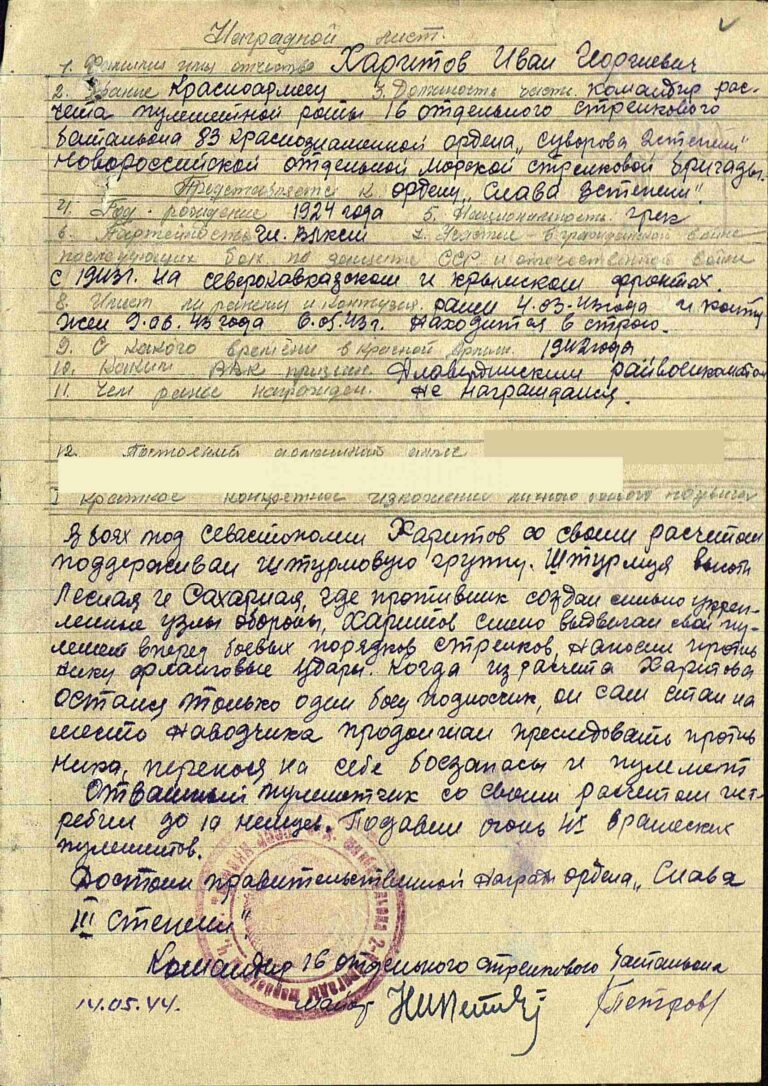 Наградной лист.
1. Фамилия имя отчество Харитов Иван Георгиевич
2. Звание Красноармеец 3. Должность часть. командир рас-
чета пулеметной роты 16 отдельного стрелкового
батальона 83 Краснознаменной ордена „Суворова 2 степени"
Новороссийской отдельной морской стрелковой бригады.
Представляется к ордену „Слава 3 степени".
4. Год рождения 1924 года 5. Национальность грек
6. Партийность чл. ВЛКСМ 7. Участие в гражданской войне
последующих боях по защите ССР и отечественной войне
с 1943г. на северокавказском и крымском фронтах.
8. Имеет ли ранения и контузии. ранен 4.03.43 года и конту
жен 9.06.43 года 6.05.43г. находится в строю.
9. С какого времени в красной армии. 1942 года
10. Каким РВК призван. Алавердинским райвоенкоматом
11. Чем ранее награжден. Не награждался.
12. Постоянный домашний адрес
I краткое конкретное изложение личного боевого подвига
В боях под севастополем Харитов со своим расчетом
поддерживал штурмовую группу. Штурмуя высоты
Лесная и Сахарная, где противник создал сильно укреп-
ленные узлы обороны, Харитов смело выдвигал свой пу-
лемет вперед боевых порядков стрелков, наносил против
нику фланговые удары. Когда из расчета Харитова
остался только один боец подносчик, он сам стал на
место наводчика продолжал преследовать против
ника, перенося на себе боезапасы и пулемет
Отважный пулеметчик со своим расчетом ист-
ребил до 10 немцев. Подавил огонь 4х вражеских
пулеметов.
Достоин правительственной награды ордена „Слава
III степени".
Командир 16 отдельного стрелкового батальона
14.05.44. майор (Петров)